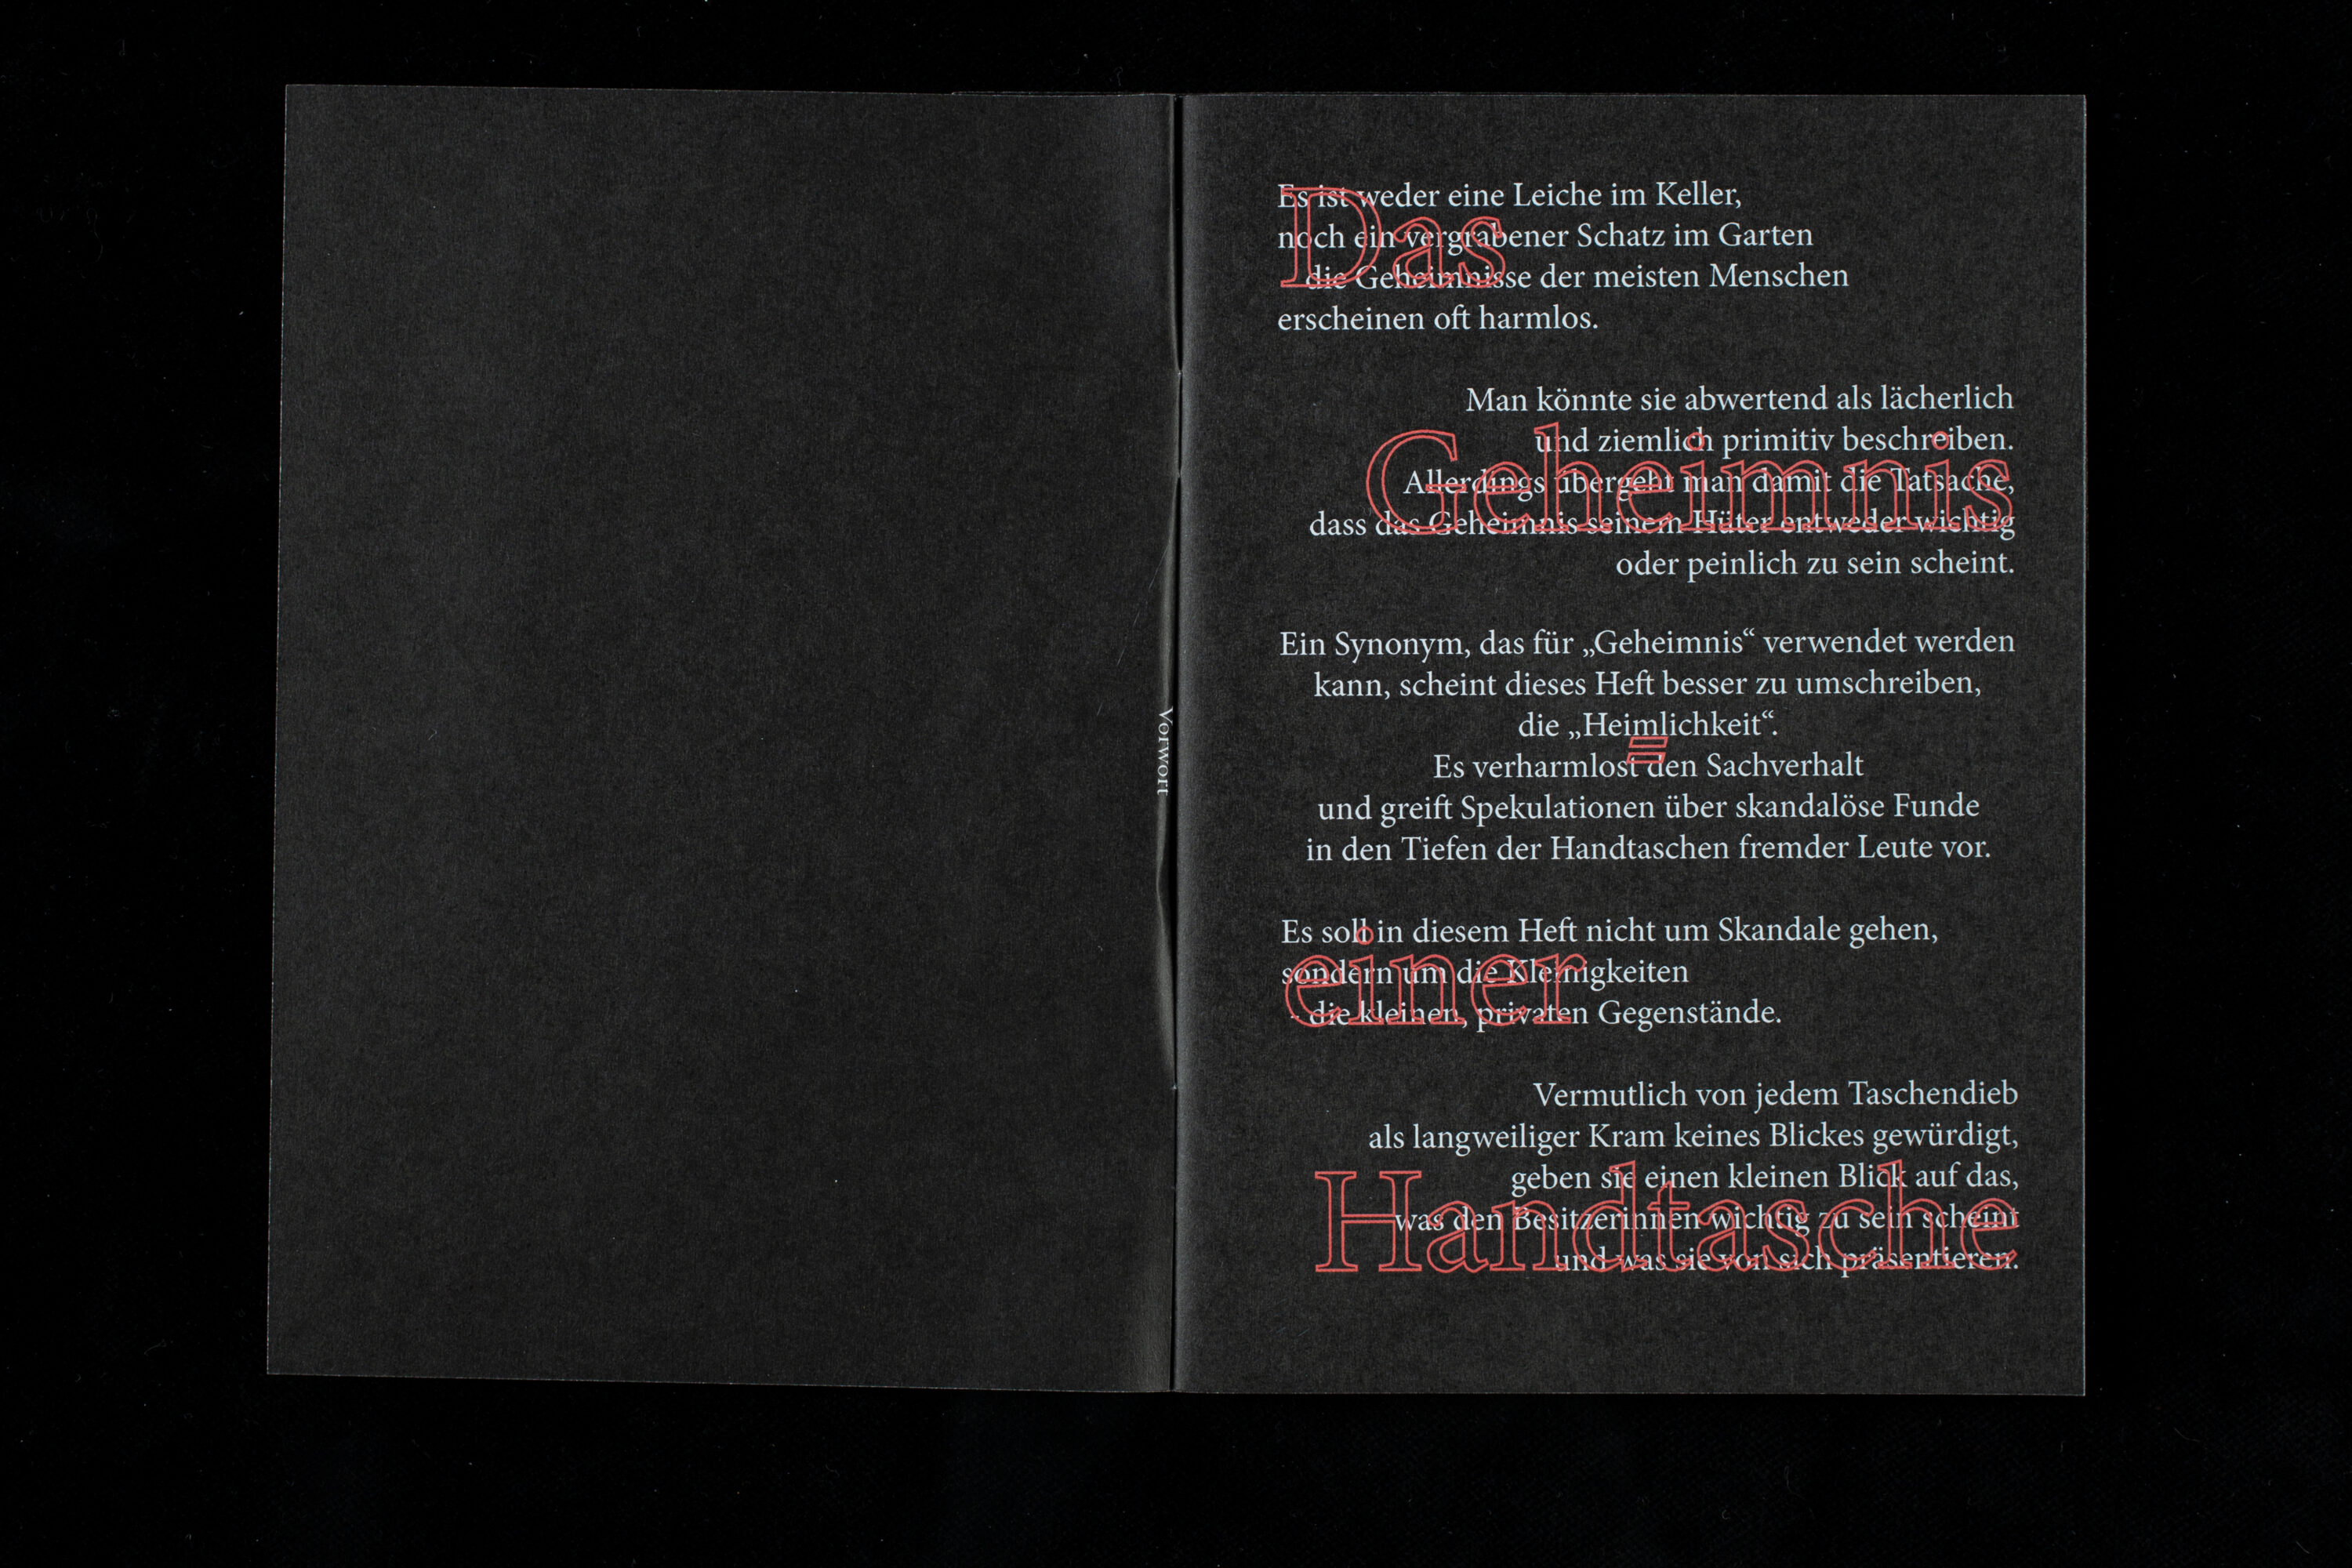 Vorwort
Es ist weder eine Leiche im Keller,
noch ein vergrabener Schatz im Garten
die Geheimnisse der meisten Menschen
erscheinen oft harmlos.
Das
Man könnte sie abwertend als lächerlich
und ziemlich primitiv beschreiben.
Allerdings übergeht man damit die Tatsache,
dass das Geheimnis seinem Hüter entweder wichtig
oder peinlich zu sein scheint.
Geheimnis
Ein Synonym, das für „Geheimnis“ verwendet werden
kann, scheint dieses Heft besser zu umschreiben,
die „Heimlichkeit“.
=
Es verharmlost den Sachverhalt
und greift Spekulationen über skandalöse Funde
in den Tiefen der Handtaschen fremder Leute vor.
Es soll in diesem Heft nicht um Skandale gehen,
sondern um die Kleinigkeiten
- die kleinen, privaten Gegenstände.
einer
Vermutlich von jedem Taschendieb
als langweiliger Kram keines Blickes gewürdigt,
geben sie einen kleinen Blick auf das,
was den Besitzerinnen wichtig zu sein scheint
und was sie von sich präsentieren.
Handtasche